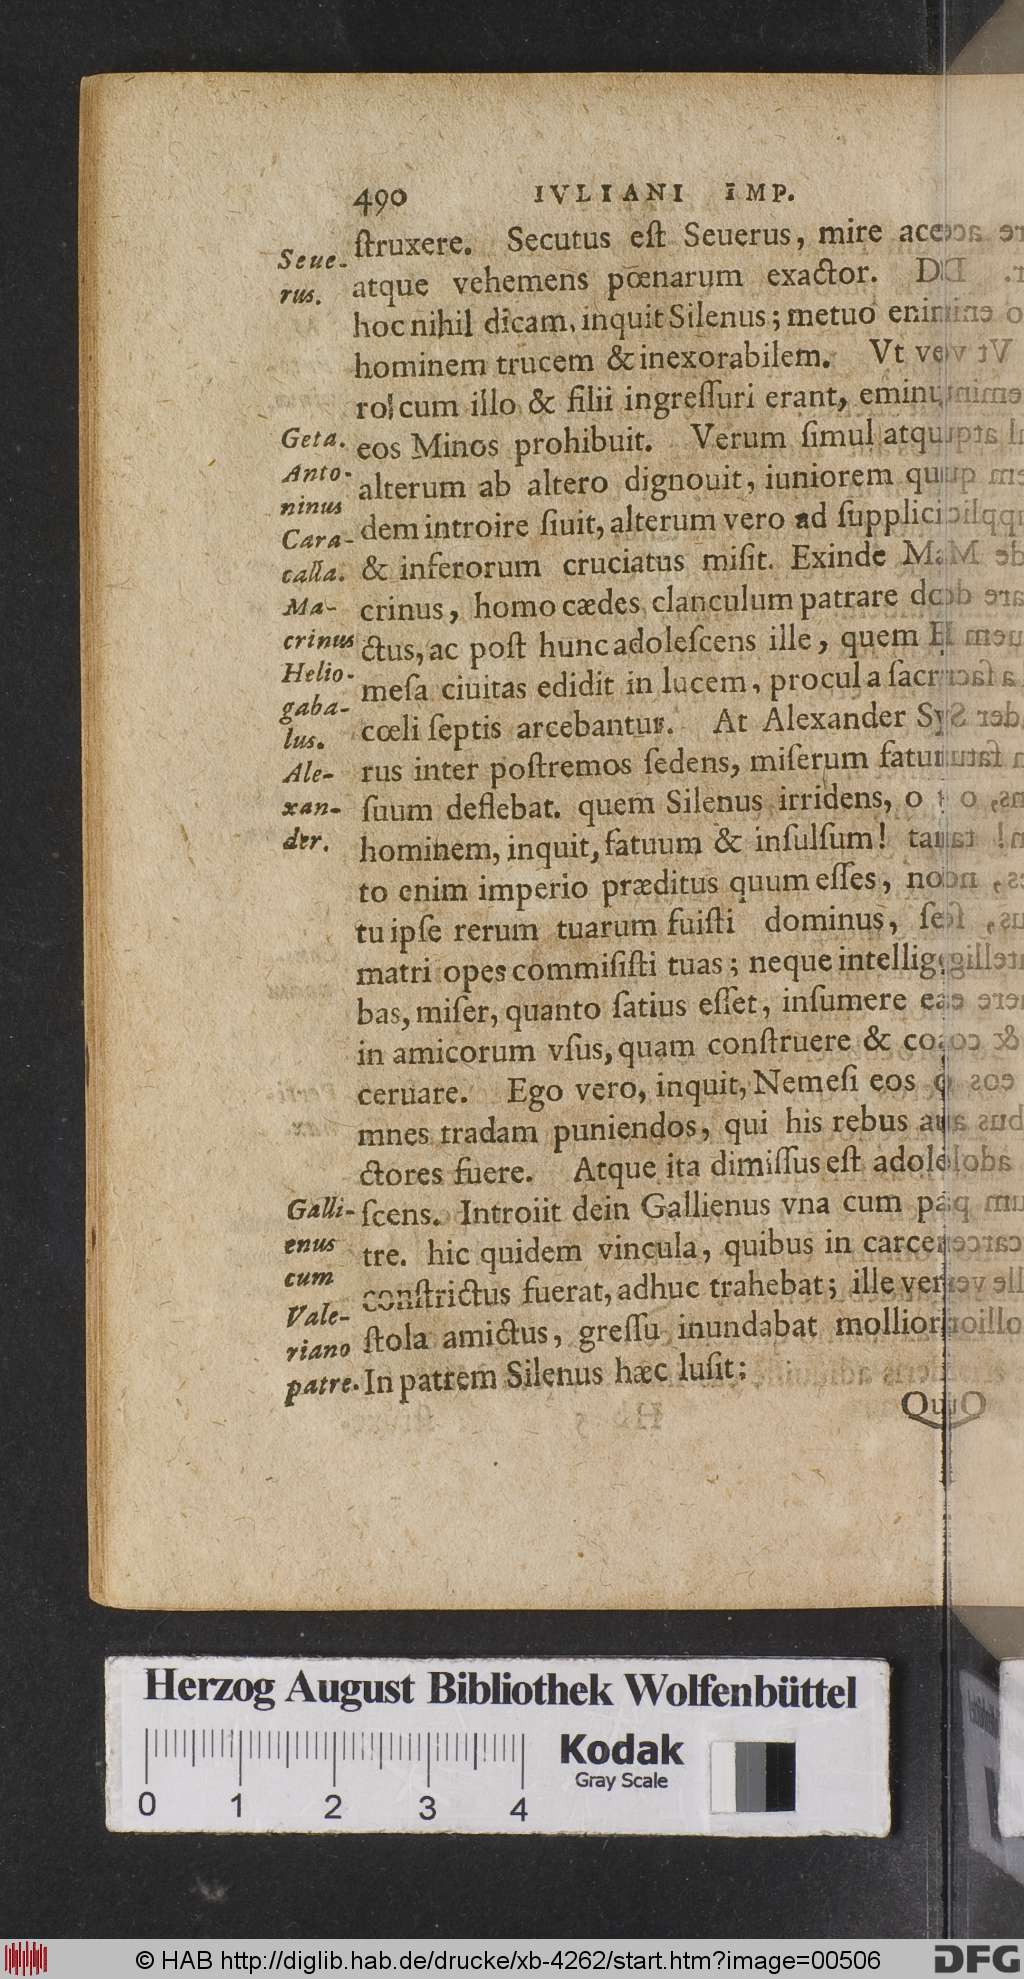 490 IVLIANI IMP.
ſtruxere. Secutus eſt Seuerus, mire
Seue-
rus.
atque vehemens pœnarum exactor. D
hoc nihil dicam, inquit Silenus; metuo
hominem trucem & inexorabilem. Vt
ro cum illo & filii ingreſſuri erant,
Geta.
eos Minos prohibuit. Verum ſimul
Anto-
ninus
Cara-
calla.
alterum ab altero dignouit, iuniorem
dem introire ſiuit, alterum vero ad
& inferorum cruciatus miſit. Exinde
Ma-
crinus
crinus, homo cædes clanculum patrare
ctus, ac poſt hunc adoleſcens ille, quem
Helio-
gaba-
lus.
meſa ciuitas edidit in lucem, procul a
cœli ſeptis arcebantur. At Alexander
Ale-
xan-
der.
rus inter poſtremos ſedens, miſerum
ſuum deflebat. quem Silenus irridens, o
hominem, inquit, fatuum & inſulſum!
to enim imperio præditus quum eſſes,
tu ipſe rerum tuarum fuiſti dominus,
matri opes commiſiſti tuas; neque
bas, miſer, quanto ſatius eſſet, inſumere
in amicorum vſus, quam conſtruere &
ceruare. Ego vero, inquit, Nemeſi eos
mnes tradam puniendos, qui his rebus
ctores fuere. Atque ita dimiſſus eſt
Galli-
enus
cum
Vale-
riano
patre.
ſcens. Introiit dein Gallienus vna cum
tre. hic quidem vincula, quibus in
conſtrictus fuerat, adhuc trahebat; ille
ſtola amictus, greſſu inundabat
In patrem Silenus hæc luſit;
Herzog August Bibliothek Wolfenbüttel
Kodak
Gray Scale
0 1 2 3 4
© HAB http://diglib.hab.de/drucke/xb-4262/start.htm?image=00506
DFG